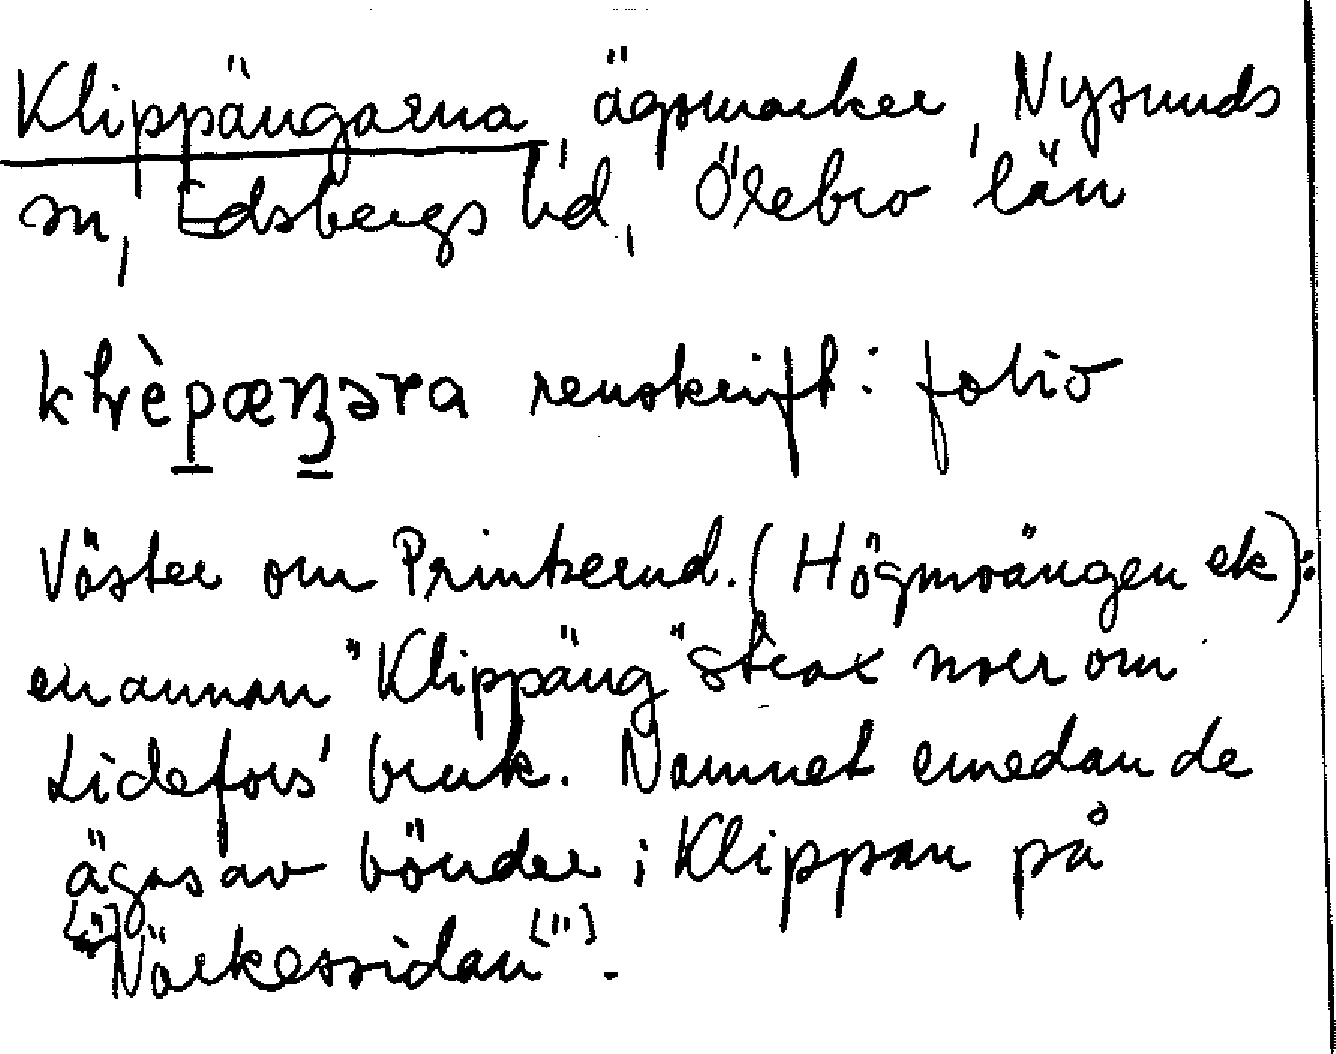 Klippängarna, ägomarker, Nysunds
sn, Edsbergs hd, Örebro län
renskrift: folio
Väster om Prinkerud. (Högmoängen ek):
en annan "Klippäng" strax norr om
Lidefors' bruk. Namnet emedan de
ägas av bönder i Klippan på
["]Närkessidan["].